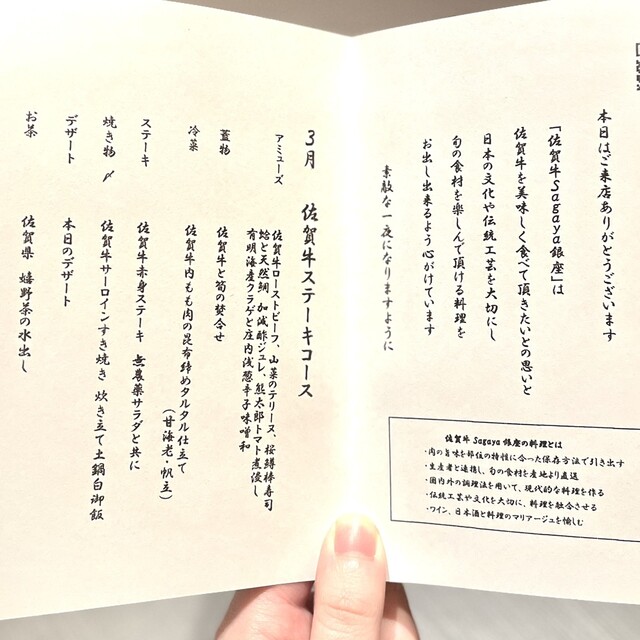 本日はご来店ありがとうございます
「佐賀牛Sagaya銀座」は
佐賀牛を美味しく食べて頂きたいとの思いと
日本の文化や伝統工芸を大切にし
旬の食材を楽しんで頂ける料理を
お出し出来るよう心がけています
素敵な一夜になりますように
佐賀牛 Sagaya 銀座の料理とは
・肉の旨味を部位の特性に合った保存方法で引き出す
・生産者と連携し、旬の食材を産地より直送
・国内外の調理法を用いて、現代的な料理を作る
・伝統工芸や文化を大切に、料理を融合させる
・ワイン、日本酒と料理のマリアージュを愉しむ
3月 佐賀牛ステーキコース
アミューズ
佐賀牛ローストビーフ、山菜のテリーヌ、桜鱒棒寿司
蛤と天然鯛 加減酢ジュレ、熊太郎トマト煮浸し
有明海産クラゲと庄内浅葱辛子味噌和
蓋物 佐賀牛と筍の焚合せ
冷菜 佐賀牛内もも肉の昆布締めタルタル仕立て
(甘海老・帆立)
ステーキ 佐賀牛赤身ステーキ 無農薬サラダと共に
焼き物 〆 佐賀牛サーロインすき焼き 炊き立て土鍋白御飯
デザート 本日のデザート
お茶 佐賀県 嬉野茶の水出し